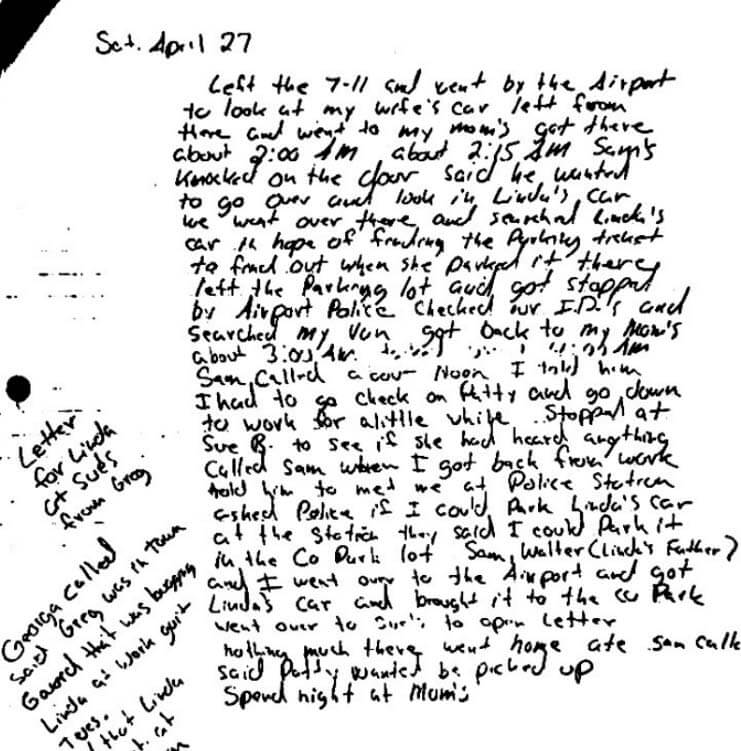 Sat. April 27
Left the 7-11 and went by the Airport
to look at my wife's car left from
there and went to my mom's got there
about 2:00 AM about 2:15 AM Sam's
Knocked on the door said he wanted
to go over and look in Linda's car
we went over there and searched Linda's
car in hope of finding the Parking ticket
to find out when she parked it there
left the Parking lot and got stopped
by Airport Police Checked our I.D.'s and
Searched my Van got back to my Mom's
about 3:00 AM AM
Sam Called about Noon I told him
I had to go check on Patty and go down
to work for alittle while Stopped at
Sue B. to see if she had heard anything
Called Sam when I got back from work
told him to met me at Police Station
asked Police if I could Park Linda's car
at the Station they said I could Park it
in the Co Park lot Sam, Walter (Linda's Father)
and I went over to the Airport and got
Linda's car and brought it to the co Park
went over to Sue's to open Letter
nothing much there went home ate Sam calle
said Patty wanted be picked up
Spend night at Mom's
Letter
for Linda
at Sues
from Greg
Georga called
said Greg was in town
Gavord that was bugging
Linda at work quit
that Linda